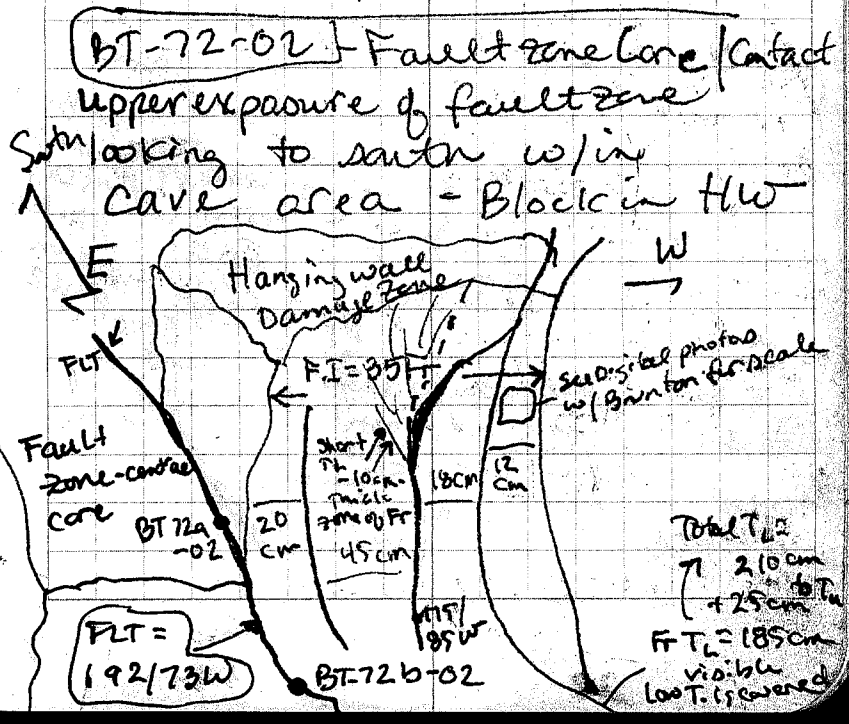 BT-72-02 - Fault zone Core/Contact
upper exposure of fault zone
South looking to south w/in
cave area - Block in HW
E
W
Hanging wall
Damage Zone
FLT
F.I = 35
See Digital photos
w/ Brunton for scale
Fault
zone-central
core
Short
TL
~10cm
thick
zone of Fr
BT 72a
-02
20
cm
45cm
18cm
12
cm
Total TL =
210cm
+25cm to Tu
Fr TL = 185cm
visible
covered
FLT =
192/73W
85W
BT-72b-02